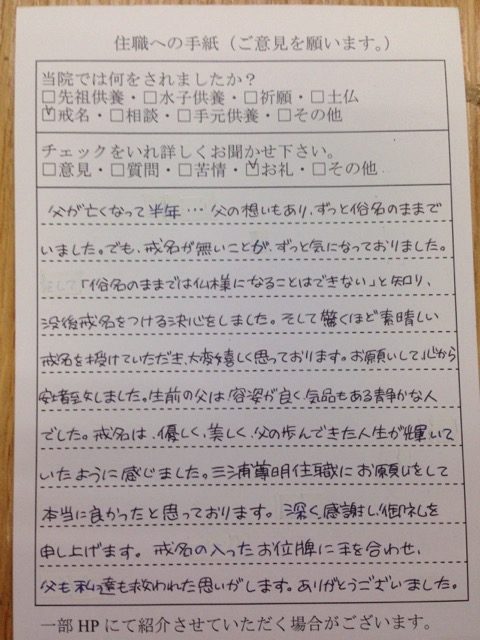 住職への手紙（ご意見を願います。）
当院では何をされましたか？
□先祖供養・□水子供養・□祈願・□土仏
☑戒名・□相談・□手元供養・□その他
チェックをいれ詳しくお聞かせ下さい。
□意見・□質問・□苦情・☑お礼・□その他
父が亡くなって半年…父の想いもあり、ずっと俗名のままで
いました。でも、戒名が無いことが、ずっと気になっておりました。
「俗名のままでは仏様になることはできない」と知り、
没後戒名をつける決心をしました。そして驚くほど素晴しい
戒名を授けていただき、大変嬉しく思っております。お願いして心から
安堵致しました。生前の父は、容姿が良く、気品もある静かな人
でした。戒名は、優しく、美しく、父の歩んできた人生が輝いて
いたように感じました。三浦尊明住職にお願いをして
本当に良かったと思っております。深く、感謝し、御礼を
申し上げます。戒名の入ったお位牌に手を合わせ、
父も私達も救われた思いがします。ありがとうございました。
一部HPにて紹介させていただく場合がございます。